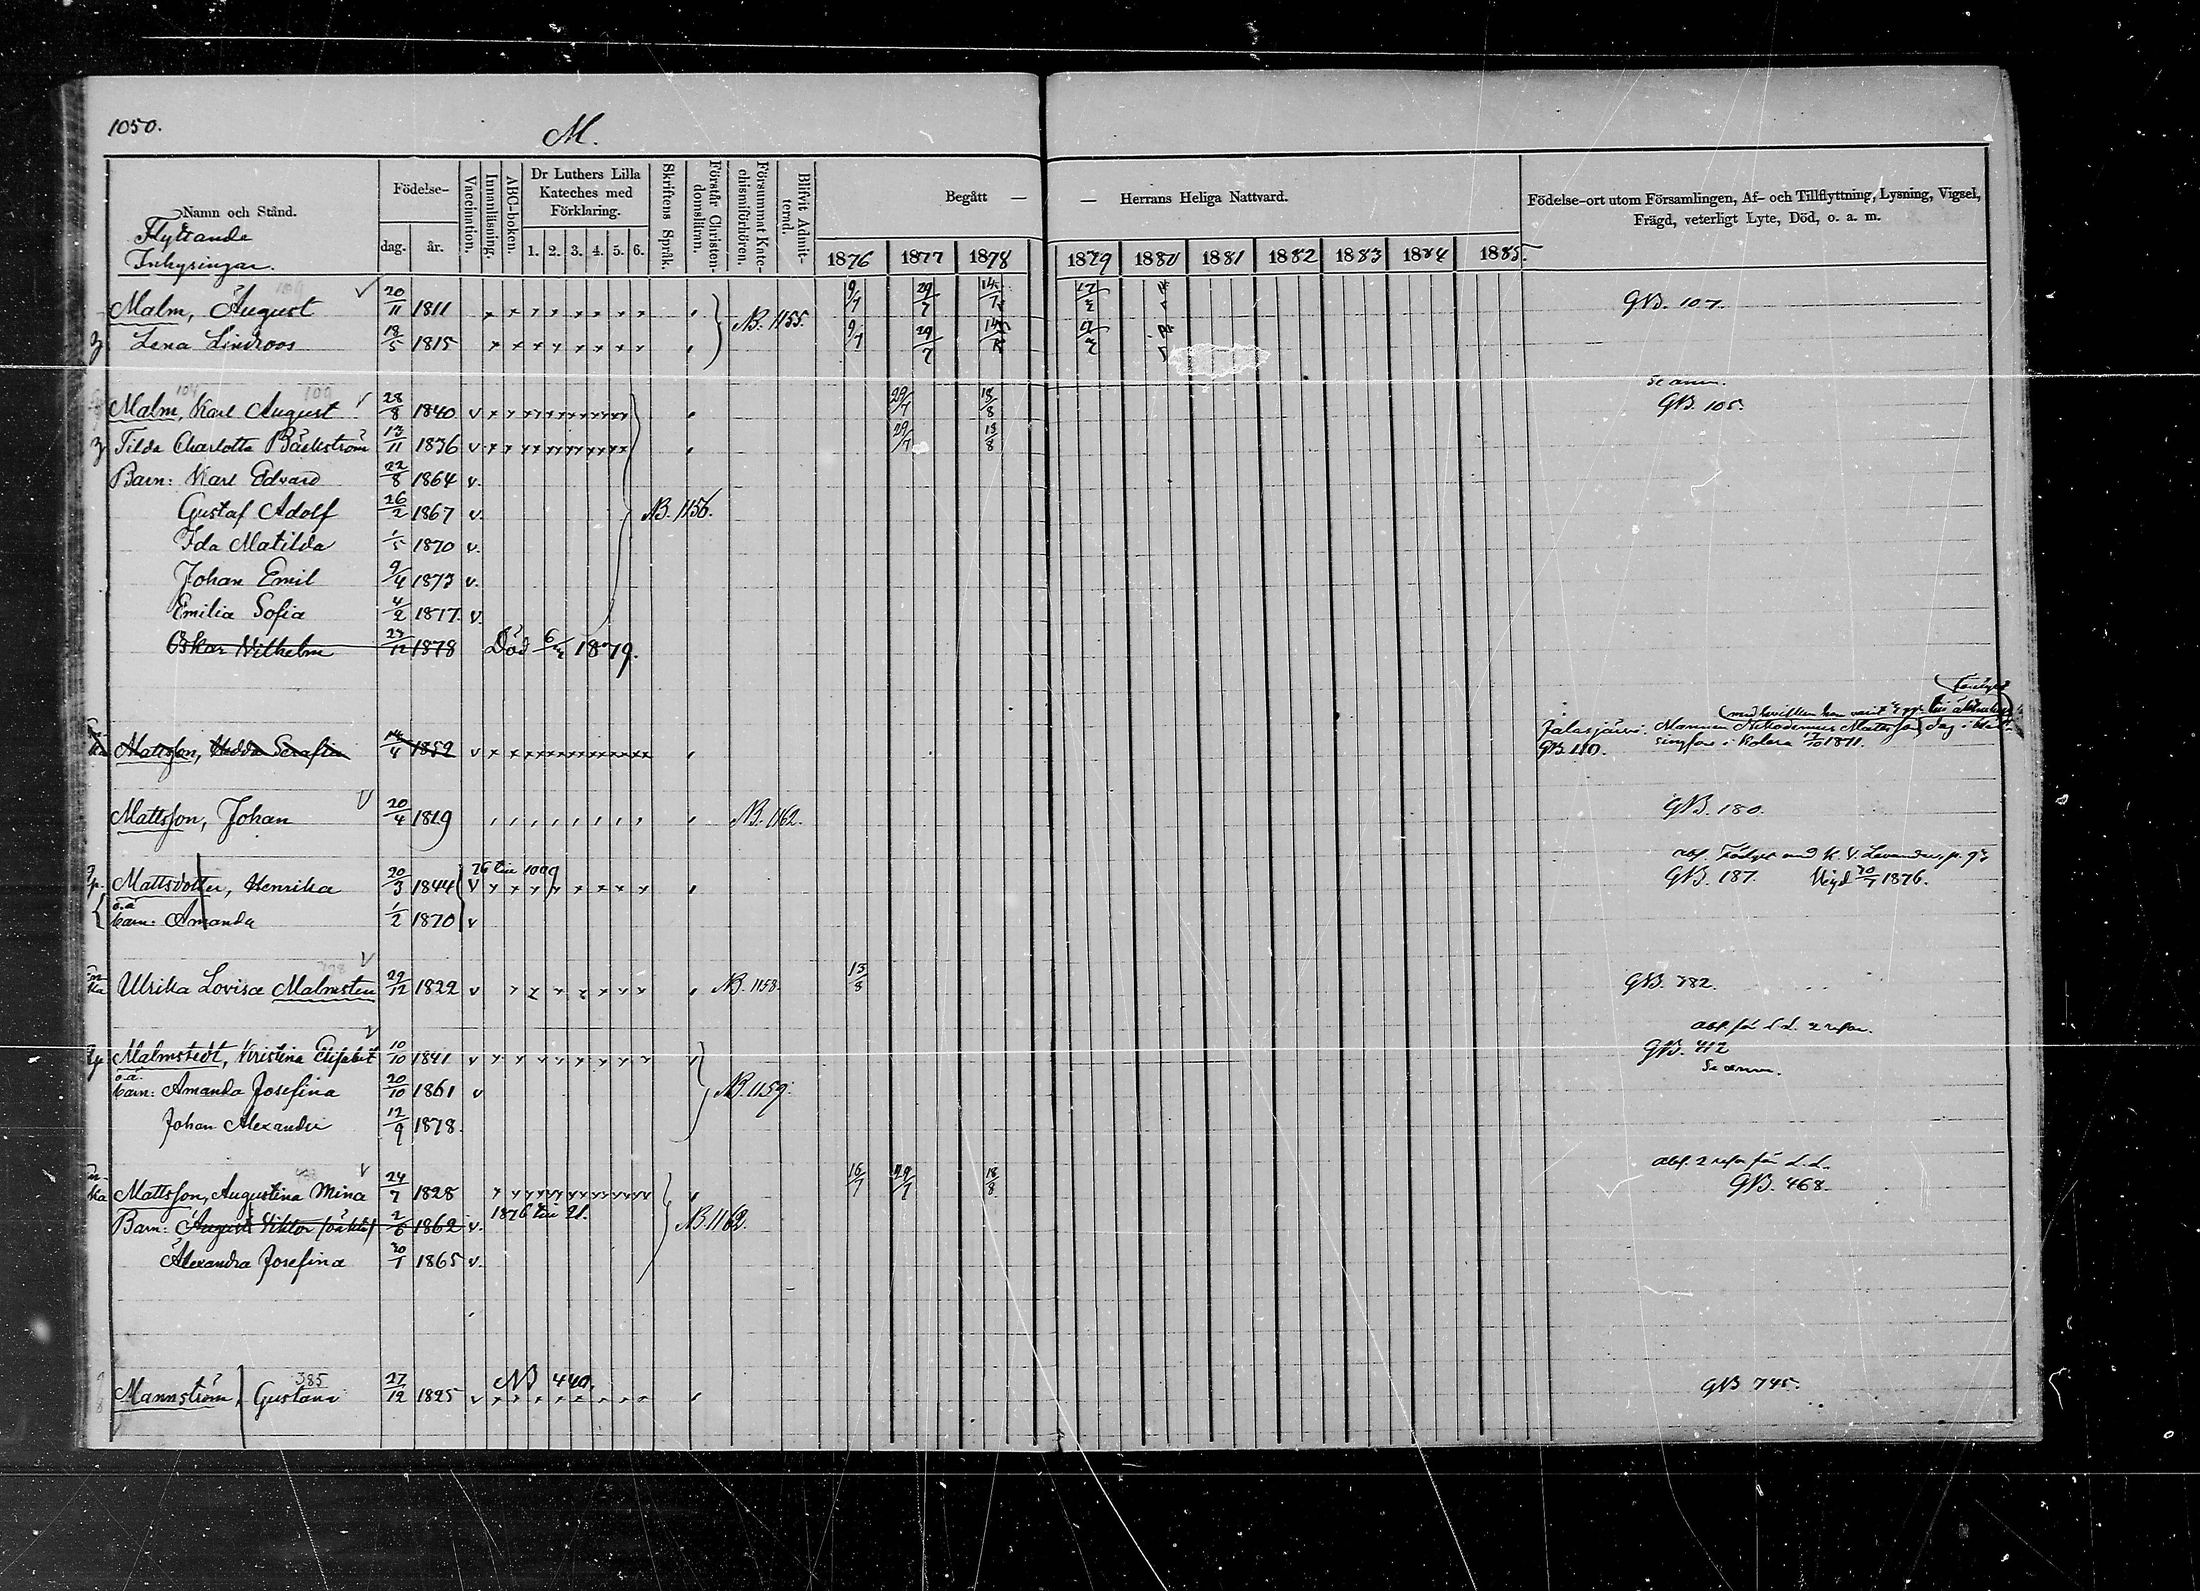 1050.
M.
Namn och Stånd.
Flyttande
Inhysingar.
Födelse-
dag. år.
Vaccination.
Innanläsning.
ABC-boken.
Dr Luthers Lilla
Kateches med
Förklaring.
1. 2. 3. 4. 5. 6.
Skriftens Språk.
Förstår Christen-
domsläran.
Försummat Kate-
chismiförhören.
Blifvit Admit-
terad.
Begått — — Herrans Heliga Nattvard.
1876 1877 1878 1879 1880 1881 1882 1883 1884 1885.
Födelse-ort utom Församlingen, Af- och Tillflyttning, Lysning, Vigsel,
Frägd, veterligt Lyte, Död, o. a. m.
Malm, August 20/11 1811 NB. 1155. 9/7 29/7 GB. 107.
Lena Lindroos 18/5 1815 9/7 29/7
Malm, Karl August 28/8 1840 v 29/7 18/8 GB. 105.
Tilda Charlotta Bäckström 13/11 1836 v 29/7 18/8
Barn: Karl Edvard 22/8 1864 v.
Gustaf Adolf 26/2 1867 v. NB. 1156.
Ida Matilda 1/5 1870 v.
Johan Emil 9/4 1873 v.
Emilia Sofia 4/2 1877. v.
Oskar Vilhelm 1878 Död 1879.
Jalasjärvi. Mannen Nikodemus Mattsson
Mattsson, Hedda Serafia 14/4 1852 v GB. 110. singfors i kolera 17/10 1871.
Mattsson, Johan 20/4 1819 NB. 1162. GB. 180.
76 till 1009
Mattsdotter, Henrika 20/3 1844 v GB. 187. Vigd 30/7 1876.
o.ä.
barn: Amanda 1/2 1870 v
Ulrika Lovisa Malmsten 29/12 1822 v NB. 1158. 13/8 GB. 382.
Abs. för L.L. 2 resor.
Malmstedt, Kristina Elisabet 10/10 1841 v NB. 1159. GB. 412
o.ä.
barn: Amanda Josefina 20/10 1861 v
Johan Alexander 12/9 1878.
Abs. 2 resor för L.L.
Mattsson, Augustina Mina 24/7 1828 16/7 29/7 18/8 GB. 468.
1876 till 21.
Barn: August Viktor 2/6 1862 v. NB. 1162.
Alexandra Josefina 30/1 1865 v.
385 NB 440.
Mannström, Gustava 27/12 1825 v GB 745.